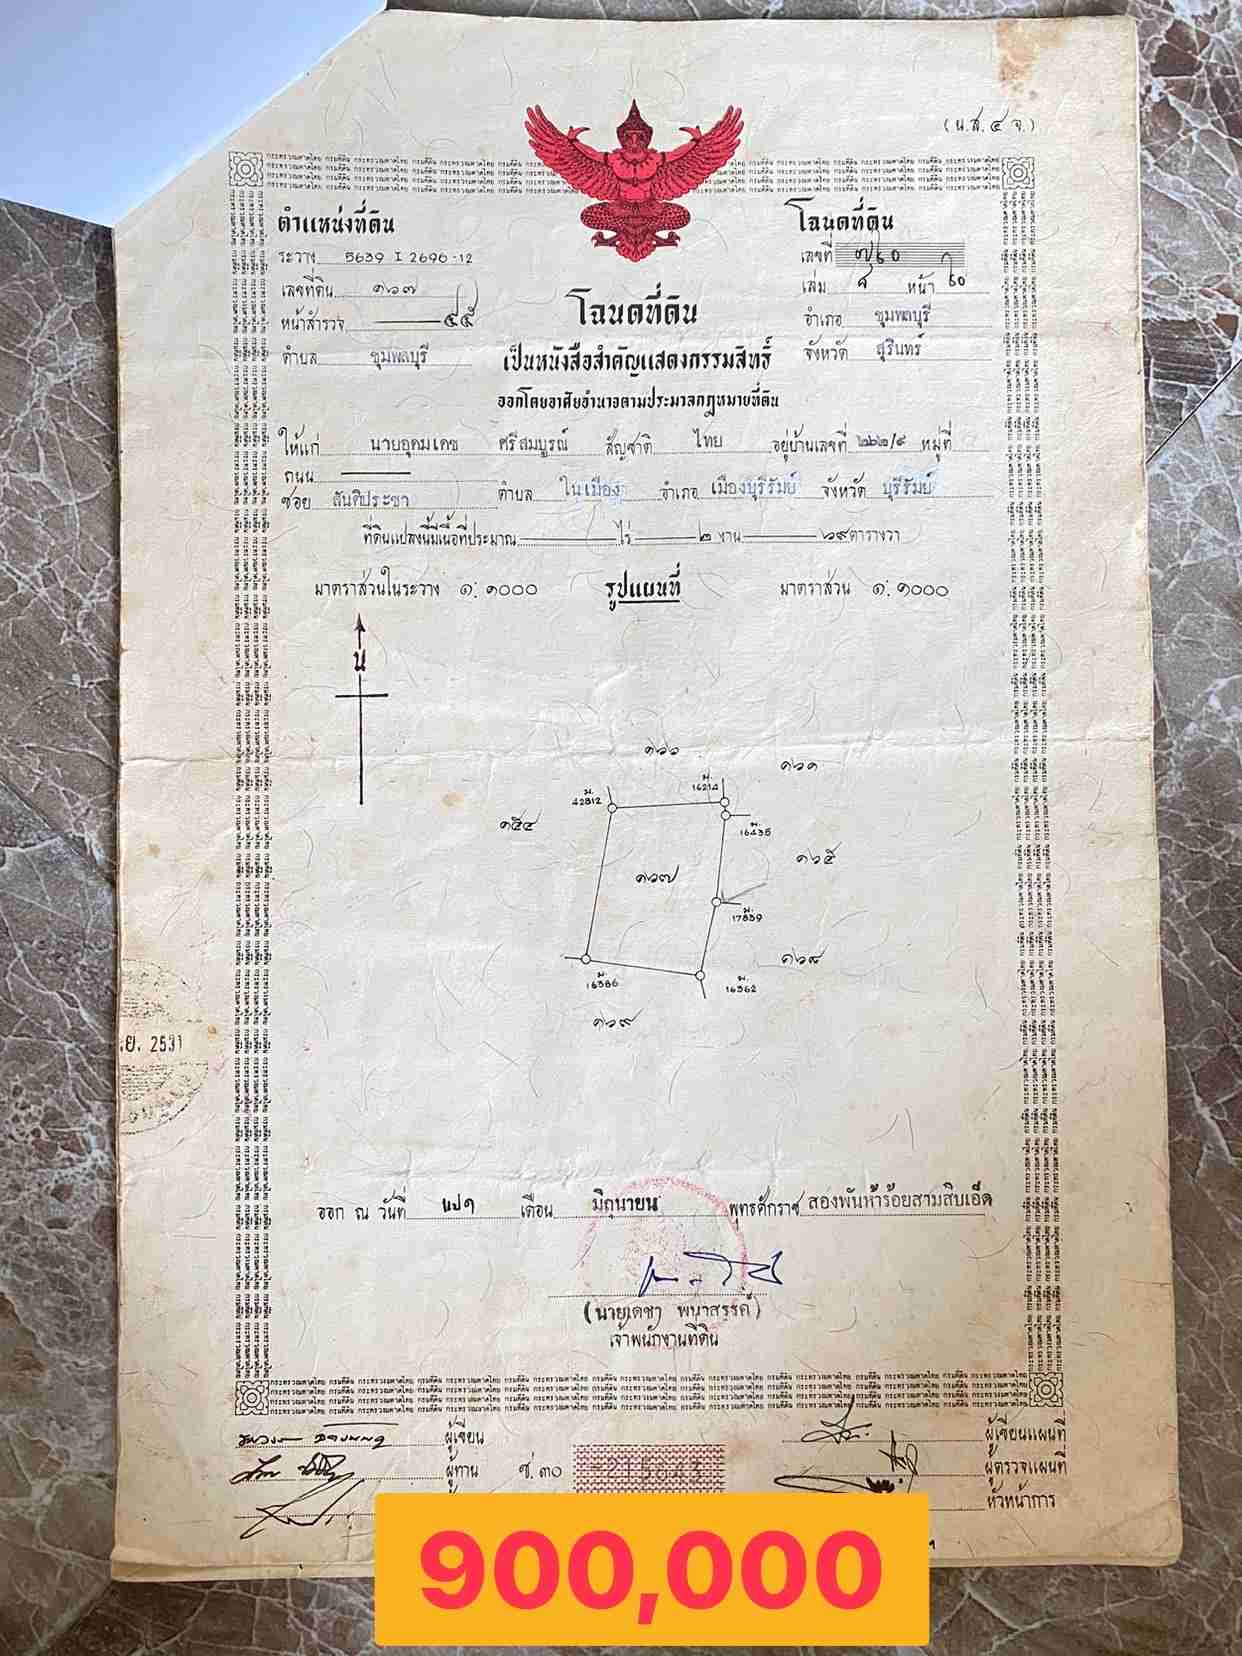 (น.ส. ๔ จ.)
ตำแหน่งที่ดิน
ระวาง 5639 I 2690-12
เลขที่ดิน ๑๖๗
หน้าสำรวจ ๔๕
ตำบล ชุมพลบุรี
โฉนดที่ดิน
เลขที่ ๗๖๐
เล่ม ๘ หน้า ๖๐
อำเภอ ชุมพลบุรี
จังหวัด สุรินทร์
โฉนดที่ดิน
เป็นหนังสือสำคัญแสดงกรรมสิทธิ์
ออกโดยอาศัยอำนาจตามประมวลกฎหมายที่ดิน
ให้แก่ นายอุดมเดช ศรีสมบูรณ์ สัญชาติ ไทย อยู่บ้านเลขที่ ๒๒๒/๙ หมู่ที่
ถนน
ซอย สันติประชา ตำบล ในเมือง อำเภอ เมืองบุรีรัมย์ จังหวัด บุรีรัมย์
ที่ดินแปลงนี้มีเนื้อที่ประมาณ ไร่ ๒ งาน ๖๙ ตารางวา
มาตราส่วนในระวาง ๑:๑๐๐๐ รูปแผนที่ มาตราส่วน ๑:๑๐๐๐
น
๑๖๖
๑๖๑
42812
16214
16435
๑๕๔
๑๖๕
๑๖๗
17839
๑๖๘
16386
16362
๑๖๙
.ย. 2531
ออก ณ วันที่ แปด เดือน มิถุนายน พุทธศักราช สองพันห้าร้อยสามสิบเอ็ด
(นายเดชา พนาสรรค์)
เจ้าพนักงานที่ดิน
ผู้เขียน
ผู้เขียนแผนที่
ผู้ทาน
ช.๓๐
ผู้ตรวจแผนที่
หัวหน้าการ
900,000